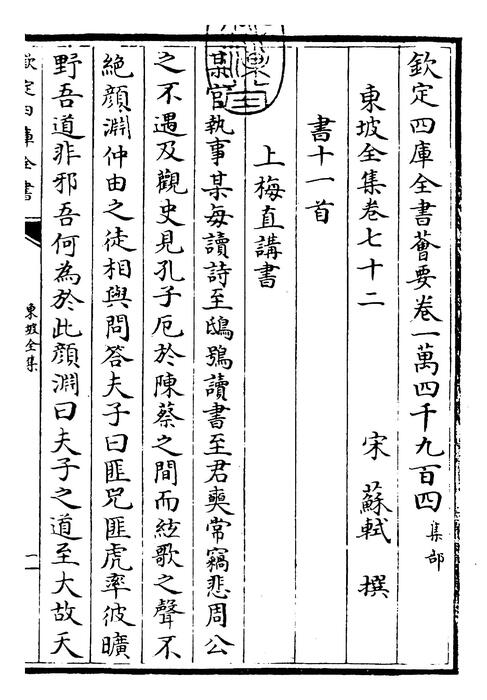 欽定四庫全書薈要卷一萬四千九百四 集部
東坡全集卷七十二
宋 蘇軾 撰
書十一首
上梅直講書
某官執事某每讀詩至鴟鴞讀書至君奭常竊悲周公
之不遇及觀史見孔子厄於陳蔡之間而絃歌之聲不
絶顔淵仲由之徒相與問答夫子曰匪兕匪虎率彼曠
野吾道非邪吾何為於此顔淵曰夫子之道至大故天
欽定四庫全書
東坡全集
一